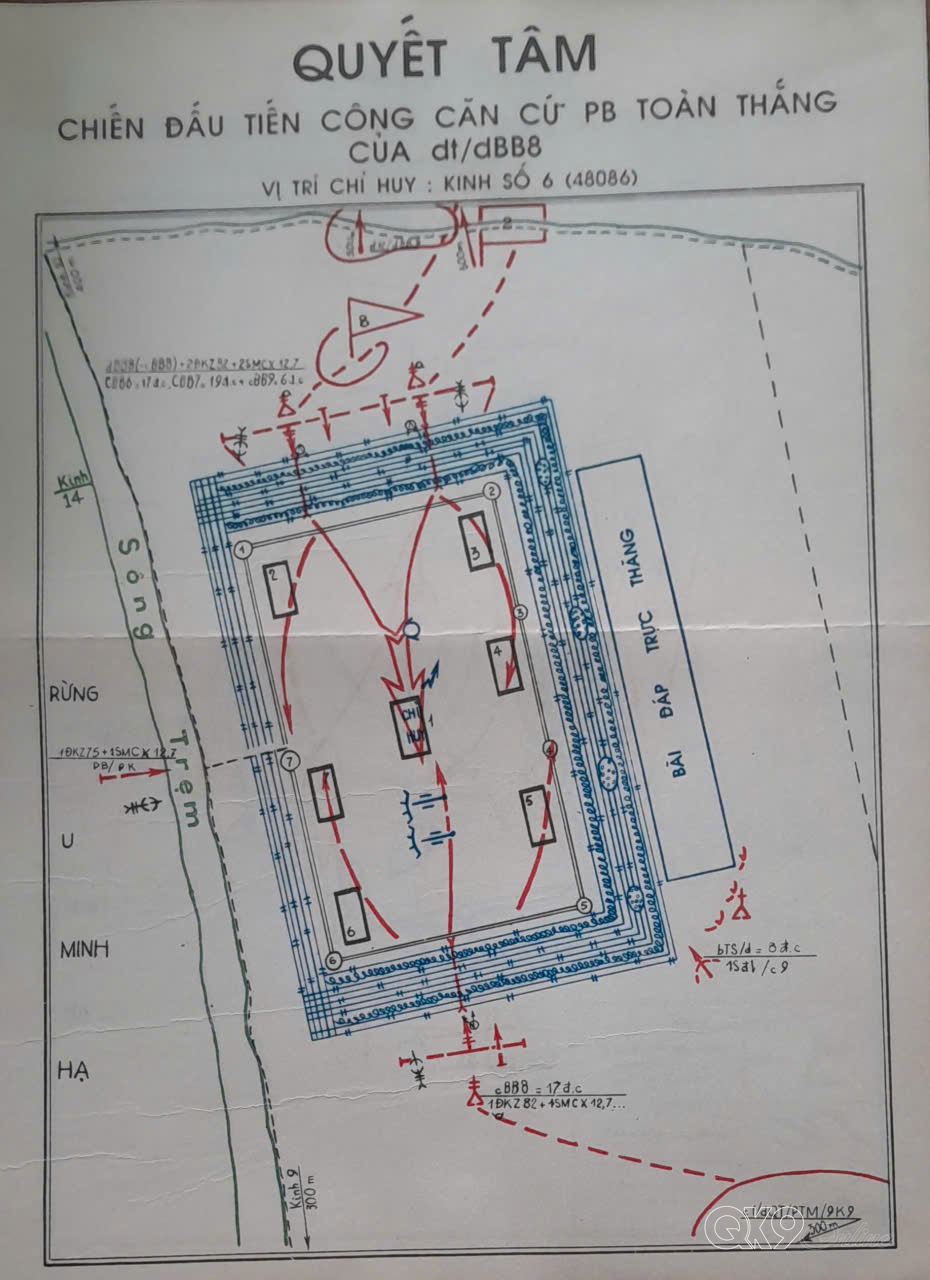 QUYẾT TÂM
CHIẾN ĐẤU TIẾN CÔNG CĂN CỨ PB TOÀN THẮNG
CỦA dt/dBB8
VỊ TRÍ CHỈ HUY : KINH SỐ 6 (48086)
2
300m
8
dBB8(-cBB8)+2ĐKZ82+2SMCX12,7
CBB6=17đ.c, CBB7=19đ.c+cBB9=6đ.c
Kinh
14
Sông
Trẹm
1
2
3
4
5
6
7
2
3
4
5
6
CHỈ
HUY
1
BÃI ĐÁP TRỰC THĂNG
RỪNG
1ĐKZ75+1SMCX12.7
U
MINH
HẠ
bTS/d = 8đ.c
cBB8 = 17đ.c
1ĐKZ82+1SMCX12,7...
Kinh 9
300m
300m
QK9